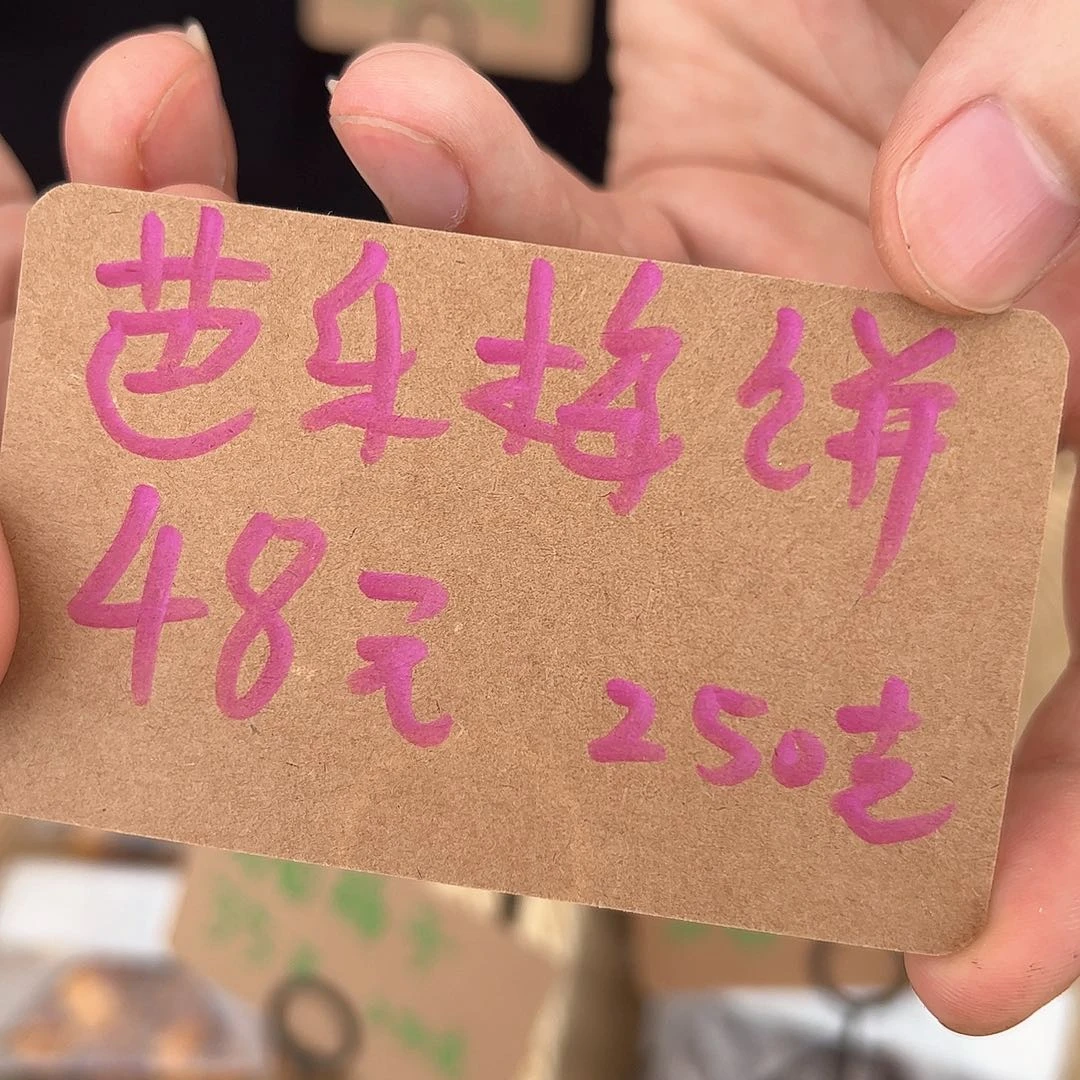 芭乐梅饼
48元
250克